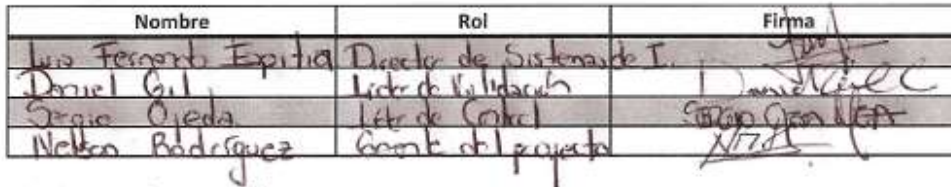 Nombre Rol Firma
Luis Fernando Espitia Director de Sistemas de I.
Daniel Gil Lider de Validación Daniel Gil C
Sergio Ojeda Lider de Control Sergio Ojeda
Nelson Rodríguez Gerente del proyecto